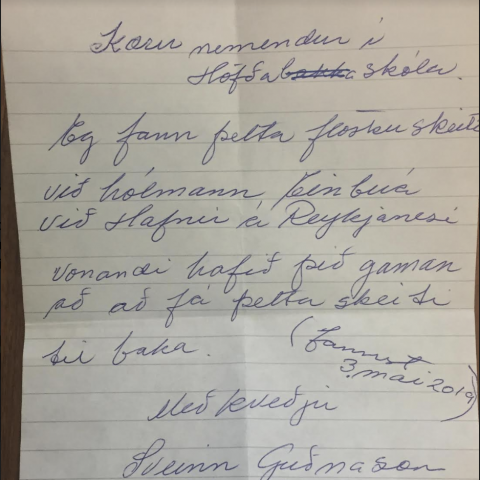 Kæru nemendur í
Höfðaskóla.
Ég fann þetta flöskuskeiti
við hólmann Einbúa
við Hafnir á Reykjanesi
vonandi hafið þið gaman
að að fá þetta skeiti
til baka.
(fannst
3. mai 2019)
Með kveðju
Sveinn Guðnason